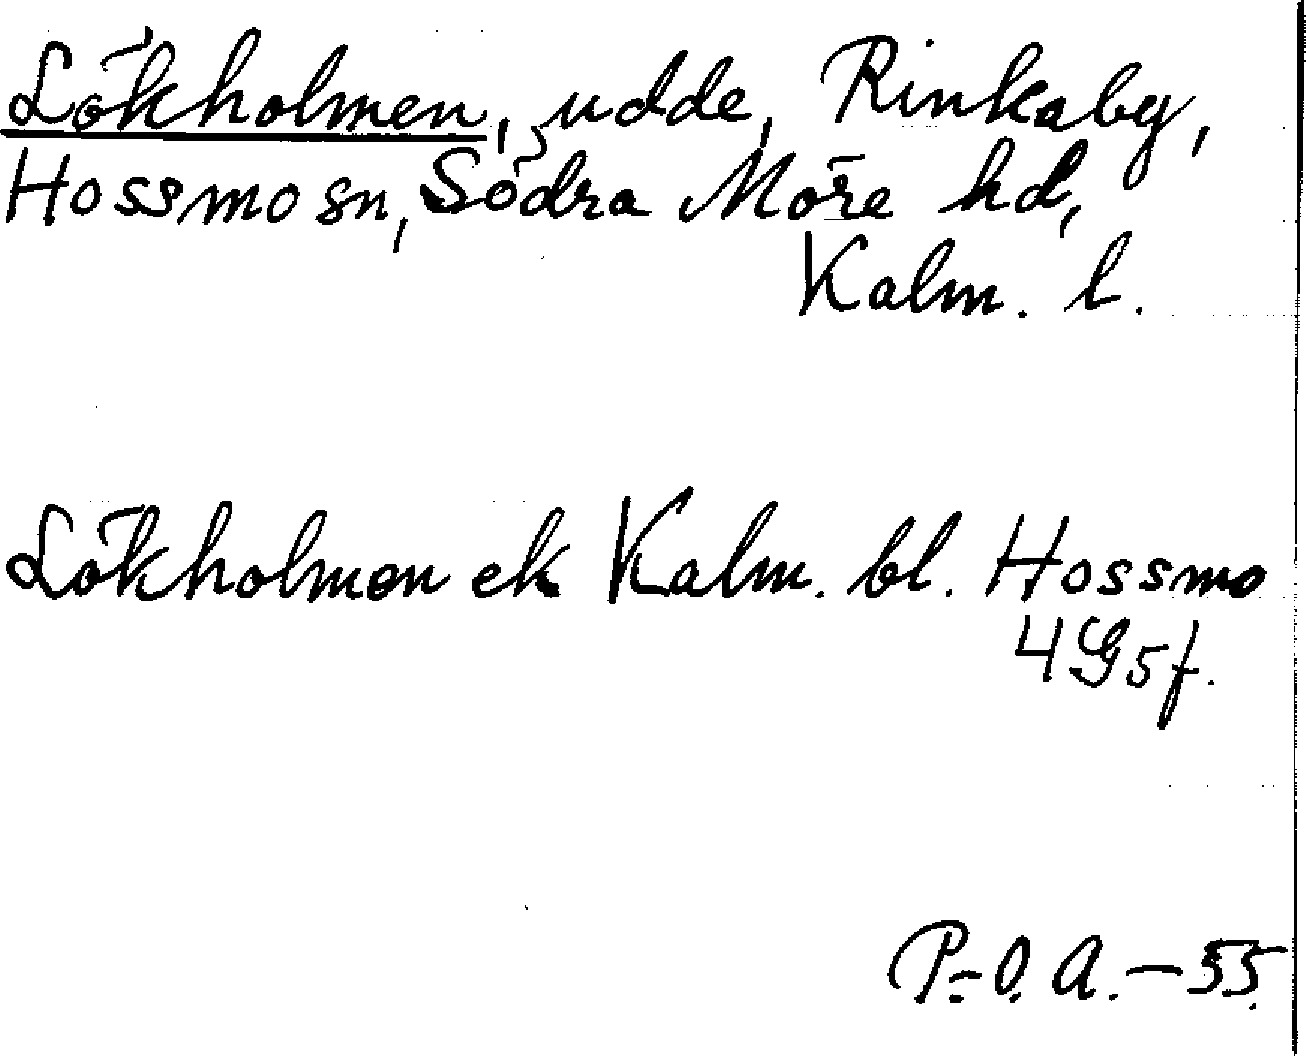 Lökholmen, udde, Rinkaby,
Hossmo sn, Södra Möre hd,
Kalm. l.
Lökholmen ek Kalm. bl. Hossmo
4G5f.
P.-O. A. - 55.